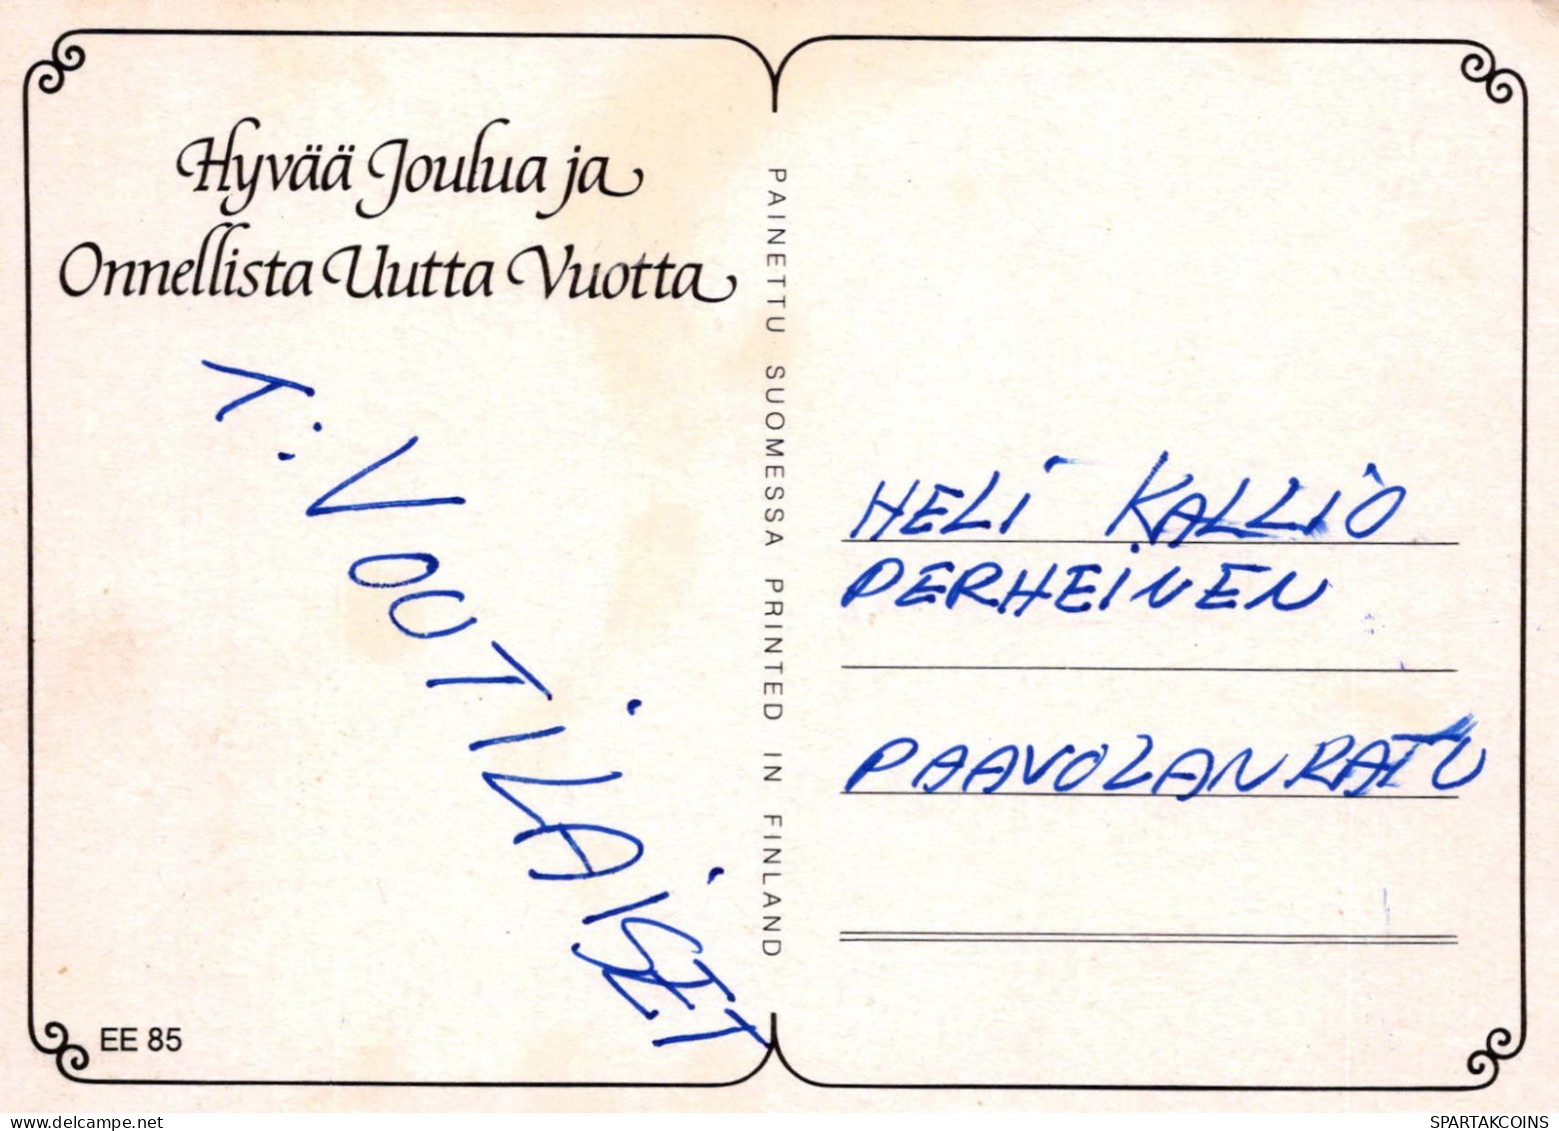 Hyvää Joulua ja
Onnellista Uutta Vuotta
T: VOUTILAISET
EE 85
PAINETTU SUOMESSA PRINTED IN FINLAND
HELI KALLIO
PERHEINEN
PAAVOLANRATU
delcampe.net
SPARTAKCOINS